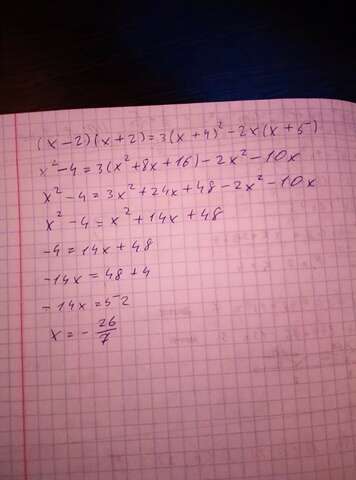 (x-2)(x+2)=3(x+4)²-2x(x+5)
x²-4=3(x²+8x+16)-2x²-10x
x²-4=3x²+24x+48-2x²-10x
x²-4=x²+14x+48
-4=14x+48
-14x=48+4
-14x=52
x=-26/7